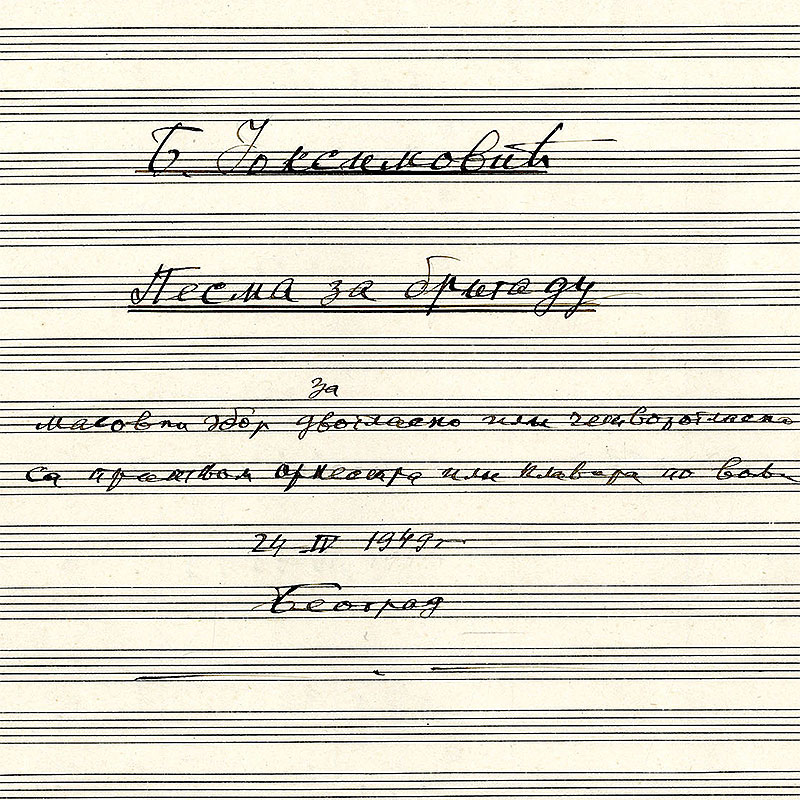 Б. Јоксимовић
Песма за бригаду
за
масовни збор двогласно или четворогласно
са пратњом оркестра или клавира по
24 IV 1949 г
Београд